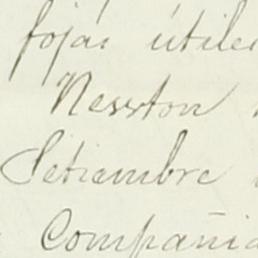 fojas útiles
Newton
Setiembre
Compañia